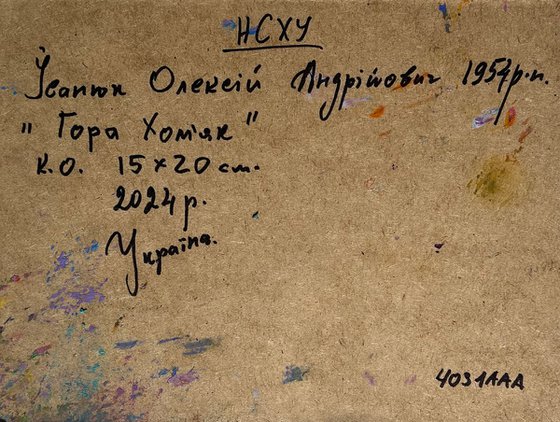 НСХУ
Іванюк Олексій Андрійович 1954р.н.
"Гора Хом'як"
К.О. 15×20 см.
2024 р.
Україна.
4031AAA